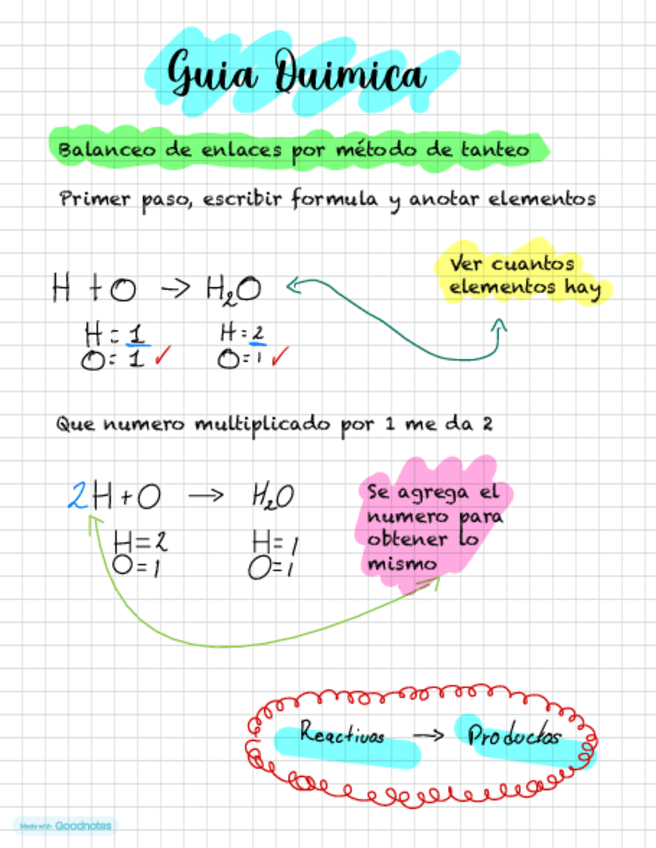 Guia Quimica
Balanceo de enlaces por método de tanteo
Primer paso, escribir formula y anotar elementos
Ver cuantos
elementos hay
H + O → H₂O
H = 1 H = 2
O = 1 ✓ O = 1 ✓
Que numero multiplicado por 1 me da 2
2H + O → H₂O
H = 2 H = 1
O = 1 O = 1
Se agrega el
numero para
obtener lo
mismo
Reactivos → Productos
Made with Goodnotes